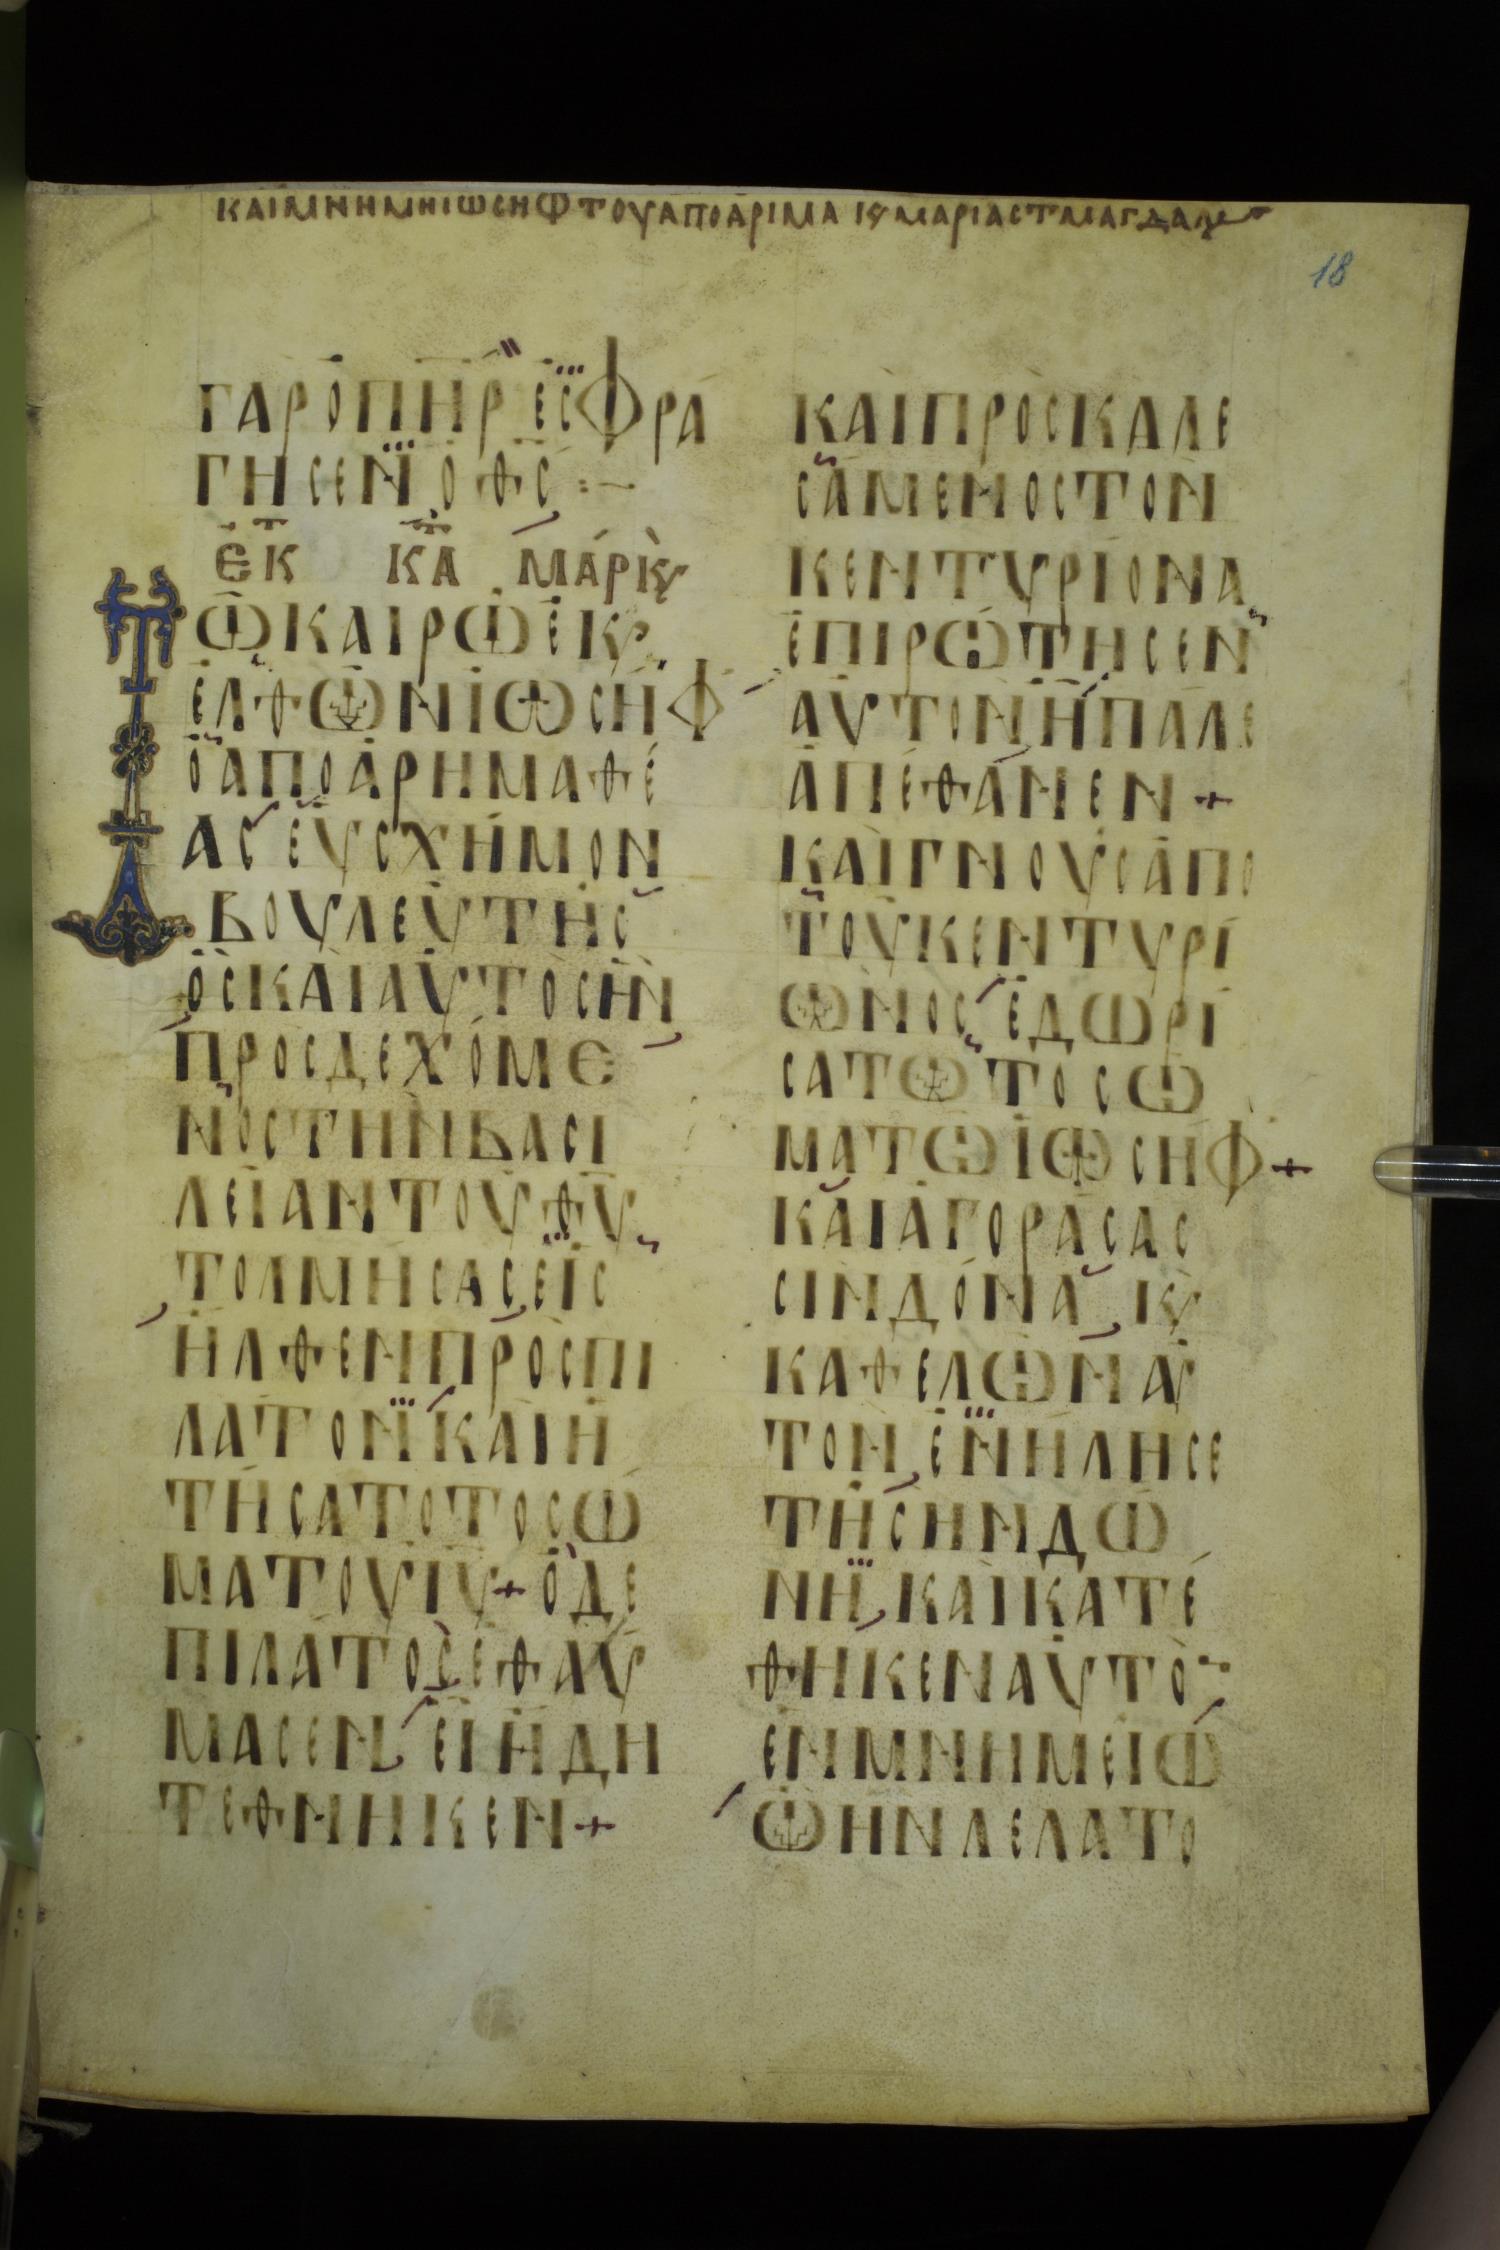 ΚΑΙΜΝΗΜΗΙΩΣΗΦΤΟΥΑΠΟΑΡΙΜΑ Κ̀ ΜΑΡΙΑΣΤΜΑΓΔΑΛ
18
ΓΑΡΟΠΗΡΕΣΦΡΑ
ΓΗΣΕΝΟΘΣ :~
ΕΚ ΚΑ ΜΑΡΚ
ΤΩΚΑΙΡΩΕΚ
ΕΛΘΩΝΙΩΣΗΦ
ΟΑΠΟΑΡΗΜΑΘΕ
ΑΣΕΥΣΧΗΜΟΝ
ΒΟΥΛΕΥΤΗΣ
ΟΣΚΑΙΑΥΤΟΣΗΝ
ΠΡΟΣΔΕΧΟΜΕ
ΝΟΣΤΗΝΒΑΣΙ
ΛΕΙΑΝΤΟΥΘΥ
ΤΟΛΜΗΣΑΣΕΙΣ
ΗΛΘΕΝΠΡΟΣΠΙ
ΛΑΤΟΝΚΑΙΗ
ΤΗΣΑΤΟΤΟΣΩ
ΜΑΤΟΥΙΥ+ΟΔΕ
ΠΙΛΑΤΟΣΕΘΑΥ
ΜΑΣΕΝΕΙΗΔΗ
ΤΕΘΝΗΚΕΝ+
ΚΑΙΠΡΟΣΚΑΛΕ
ΣΑΜΕΝΟΣΤΟΝ
ΚΕΝΤΥΡΙΟΝΑ
ΕΠΙΡΩΤΗΣΕΝ
ΑΥΤΟΝΗΠΑΛΕ
ΑΠΕΘΑΝΕΝ+
ΚΑΙΓΝΟΥΣΑΠΟ
ΤΟΥΚΕΝΤΥΡΙ
ΩΝΟΣΕΔΩΡΙ
ΣΑΤΩΤΟΣΩ
ΜΑΤΩΙΩΣΗΦ+
ΚΑΙΑΓΟΡΑΣΑΣ
ΣΙΝΔΟΝΑ Κ̀
ΚΑΘΕΛΩΝΑΥ
ΤΟΝΕΝΗΛΗΣΕ
ΤΗΣΗΝΔΩ
ΝΗΚΑΙΚΑΤΕ
ΘΗΚΕΝΑΥΤΟ
ΕΝΜΝΗΜΕΙΩ
ΩΗΝΛΕΛΑΤΟ